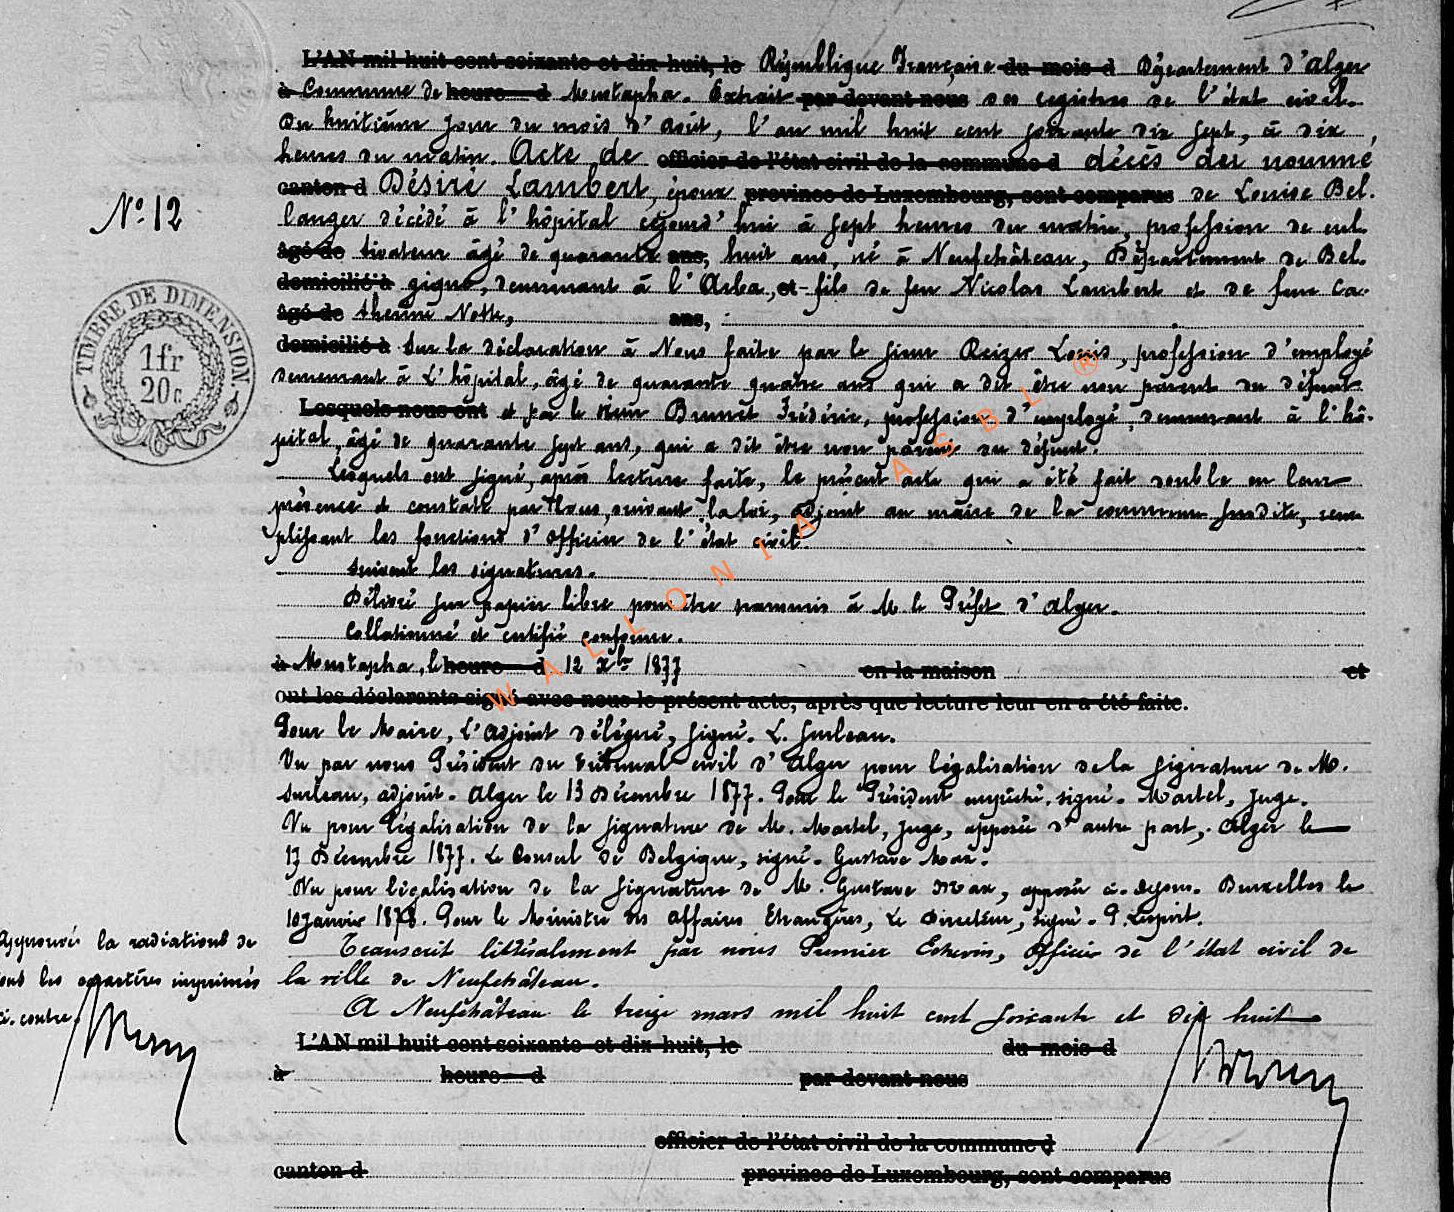 L'AN mil huit cent soixante et dix huit, le République Française du mois d Département d'Alger
à Commune de heure d Mustapha. Extrait par devant nous des registres de l'état civil.
Du huitième jour du mois d'août, l'an mil huit cent soixante dix sept, à dix
heures du matin. Acte de officier de l'état civil de la commune d décès du nommé
canton d Désiré Lambert, époux province de Luxembourg, sont comparus de Louise Bel.
N° 12
langer décédé à l'hôpital cejourd'hui à sept heures du matin, profession de cul
âgé de tivateur âgé de quarante ans, huit ans, né à Neufchâteau, Département de Bel.
domicilié à gique, demeurant à l'Arba, et fils de feu Nicolas Lambert et de feue Ca.
âgé de therine Notte, ans,
TIMBRE DE DIMENSION.
1fr
20c
domicilié à Sur la déclaration à Nous faite par le sieur Reizer Louis, profession d'employé
demeurant à L'hôpital, âgé de quarante quatre ans qui a dit être non parent du défunt
Lesquels nous ont et par le sieur Brunet Frédéric, profession d'employé, demeurant à l'hô-
pital, âgé de quarante sept ans, qui a dit être non parent du défunt.
Lesquels ont signé, après lecture faite, le présent acte qui a été fait double en leur
présence et constaté par Nous, suivant la loi, adjoint au maire de la commune susdite, rem
plissant les fonctions d'officier de l'état civil.
Suivent les signatures.
Délivré sur papier libre pour être transmis à M. le Préfet d'Alger.
Collationné et certifié conforme.
à Mustapha, le heure d 12 Xbre 1877 en la maison et
ont les déclarants signé avec nous le présent acte, après que lecture leur en a été faite.
Pour le Maire, L'adjoint délégué, signé. L. Surleau.
Vu par nous Président du Tribunal civil d'Alger pour légalisation de la signature de M.
Surleau, adjoint. Alger le 13 Décembre 1877. Pour le Président empêché, signé. Martel, Juge.
Vu pour légalisation de la signature de M. Martel, Juge, apposée d'autre part, Alger le
13 Décembre 1877. Le Consul de Belgique, signé. Gustave
Vu pour légalisation de la signature de M. Gustave apposée Bruxelles le
10 Janvier 1878. Pour le Ministre des Affaires Etrangères, Le Directeur, signé.
Transcrit littéralement par nous Premier Echevin, Officier de l'état civil de
la ville de Neufchâteau.
Approuvé la radiations de
tous les caractères imprimés
ci-contre.
A Neufchâteau le treize mars mil huit cent soixante et dix huit
L'AN mil huit cent soixante et dix huit, le du mois d
à heure d par devant nous
officier de l'état civil de la commune d
canton d province de Luxembourg, sont comparus
WALLONIA ASBL ®